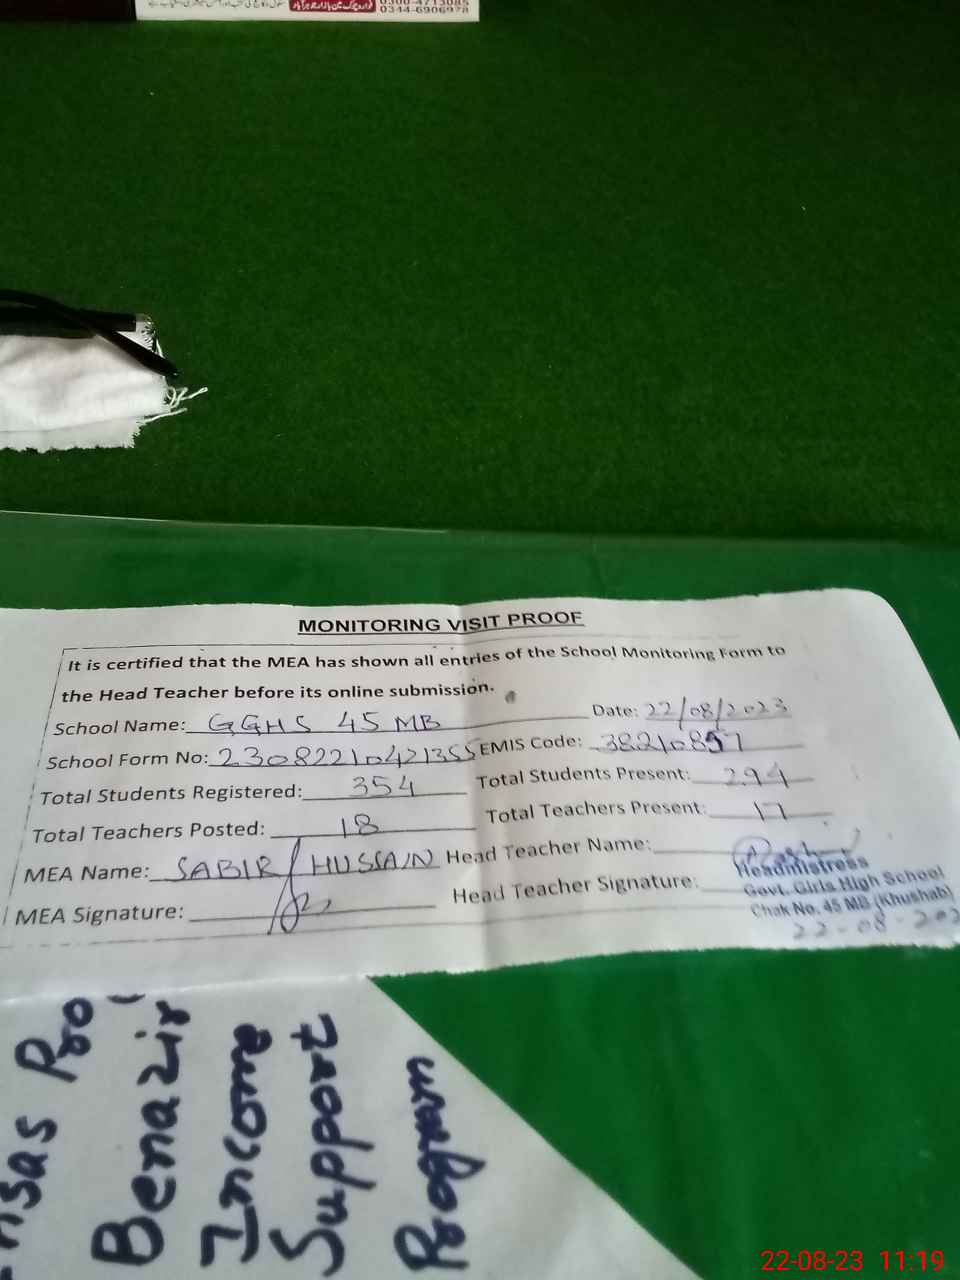 0300-4713085
0344-6906978
MONITORING VISIT PROOF
It is certified that the MEA has shown all entries of the School Monitoring Form to
the Head Teacher before its online submission.
School Name: GGHS 45 MB Date: 22/08/2023
School Form No: 23082210421355 EMIS Code: 38210857
Total Students Registered: 354 Total Students Present: 294
Total Teachers Posted: 18 Total Teachers Present: 17
MEA Name: SABIR HUSSAIN Head Teacher Name:
MEA Signature: Head Teacher Signature:
Headmistress
Govt. Girls High School
Chak No. 45 MB (Khushab)
22-08-202
Pro
Benazir
Income
Support
Program
22-08-23 11:19